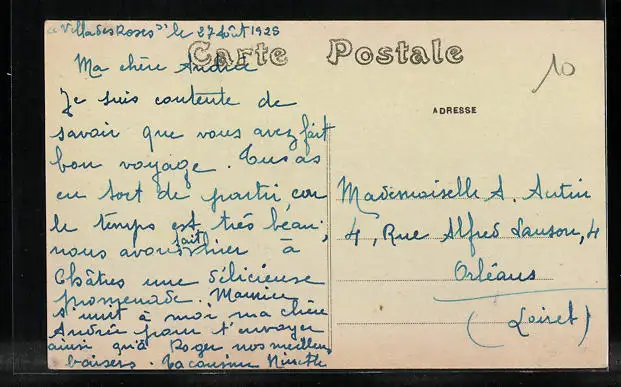 "Villa des Roses" le 27 Août 1928
Carte Postale
10
Ma chère Andrée
Je suis contente de
savoir que vous avez fait
bon voyage. Tu as
eu tort de partir, car
le temps est très beau,
nous avons fait hier à
Châtres une délicieuse
promenade. Mamie
s'unit à moi ma chère
Andrée pour t'envoyer
ainsi qu'à Roger nos meilleurs
baisers. Ta cousine Ninette
ADRESSE
Mademoiselle A. Autin
4, Rue Alfred Lanson, 4
Orléans
(Loiret)